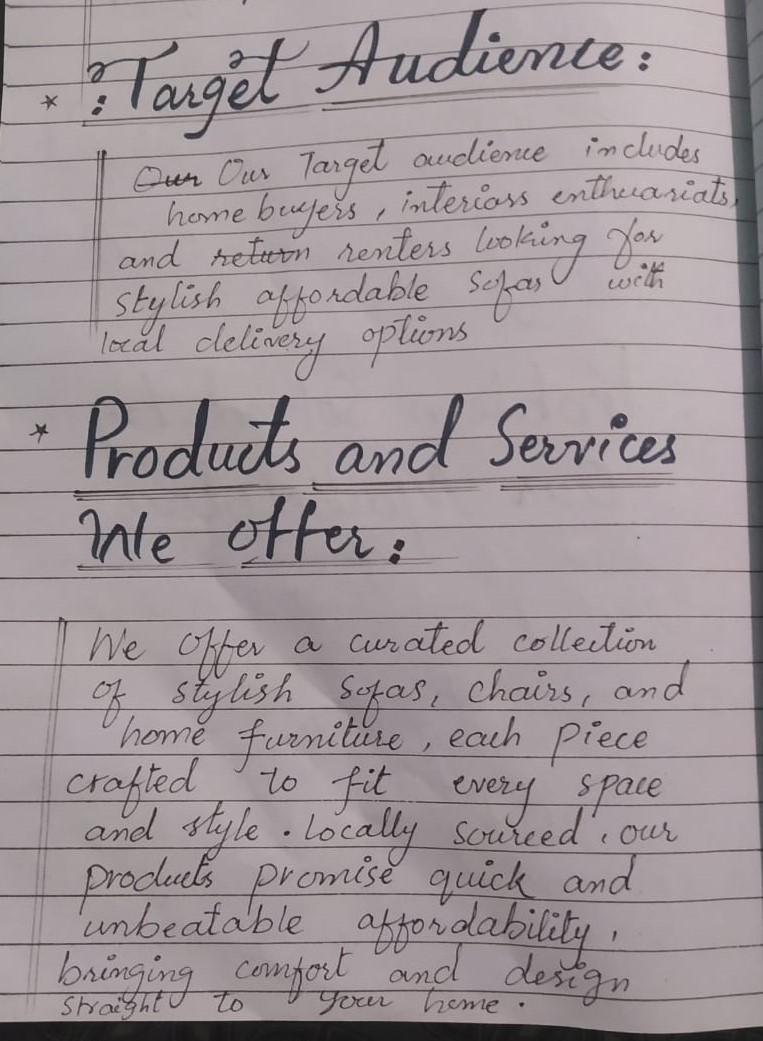 * : Target Audience :
Our Our Target audience includes
home buyers, interiors enthuariats,
and return renters looking for
stylish affordable sofas with
local delivery options
* Products and Services
We offer :
We offer a curated collection
of stylish sofas, chairs, and
home furniture, each piece
crafted to fit every space
and style. locally sourced, our
products promise quick and
unbeatable affordability,
bringing comfort and design
straight to your home.